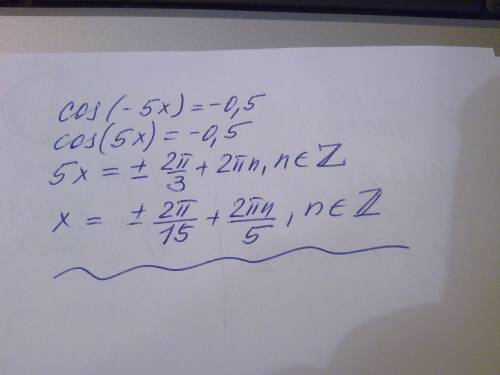 cos(-5x)=-0,5
cos(5x)=-0,5
5x = ± 2π/3 + 2πn, n∈ℤ
x = ± 2π/15 + 2πn/5, n∈ℤ